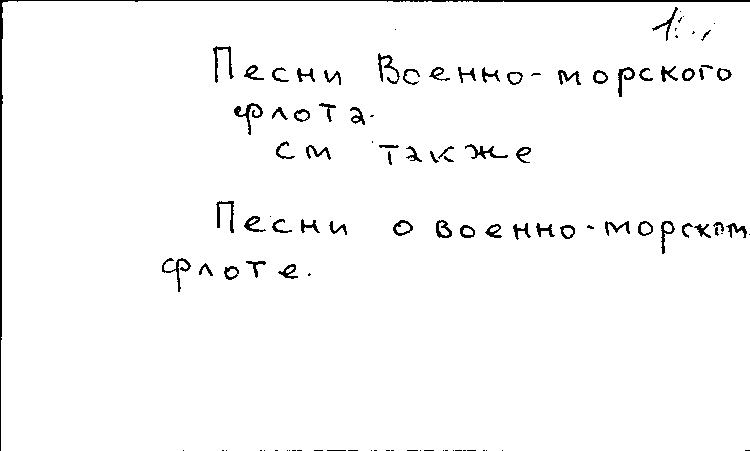 Песни Военно-морского
флота.
см также
Песни о военно-морском
флоте.